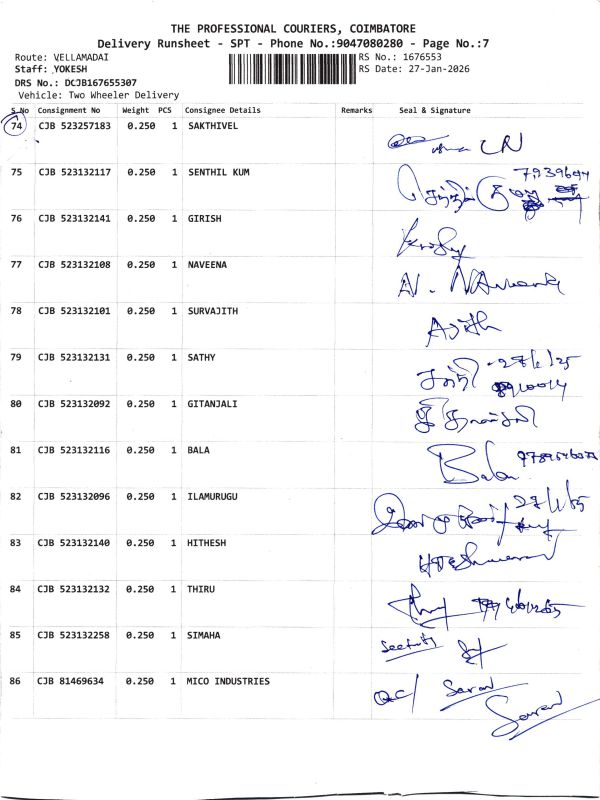 THE PROFESSIONAL COURIERS, COIMBATORE
Delivery Runsheet - SPT - Phone No.:9047080280 - Page No.:7
Route: VELLAMADAI RS No.: 1676553
Staff: YOKESH RS Date: 27-Jan-2026
DRS No.: DCJB167655307
Vehicle: Two Wheeler Delivery
S.No Consignment No Weight PCS Consignee Details Remarks Seal & Signature
74 CJB 523257183 0.250 1 SAKTHIVEL
75 CJB 523132117 0.250 1 SENTHIL KUM
76 CJB 523132141 0.250 1 GIRISH
77 CJB 523132108 0.250 1 NAVEENA
78 CJB 523132101 0.250 1 SURVAJITH
79 CJB 523132131 0.250 1 SATHY
80 CJB 523132092 0.250 1 GITANJALI
81 CJB 523132116 0.250 1 BALA Bala
82 CJB 523132096 0.250 1 ILAMURUGU
83 CJB 523132140 0.250 1 HITHESH
84 CJB 523132132 0.250 1 THIRU
85 CJB 523132258 0.250 1 SIMAHA
86 CJB 81469634 0.250 1 MICO INDUSTRIES Saran
Saran